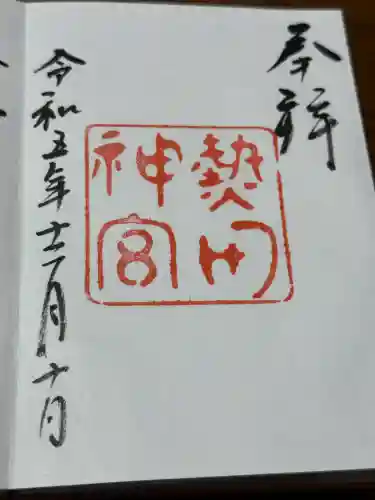 奉拝
熱田
神宮
令和五年十一月十日